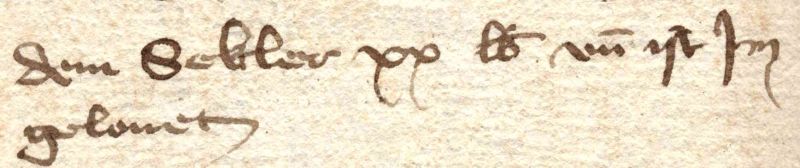 dem Sekler xx lb vn̄ ist Im
gelonet